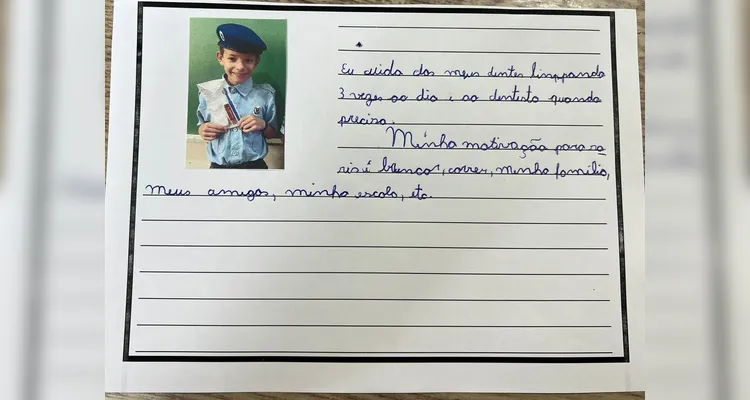 Eu cuido dos meus dentes limppando
3 vezes ao dia e ao dentista quando
preciso.
Minha motivação para so
ris é brincar, correr, minha família,
meus amigos, minha escola, etc.